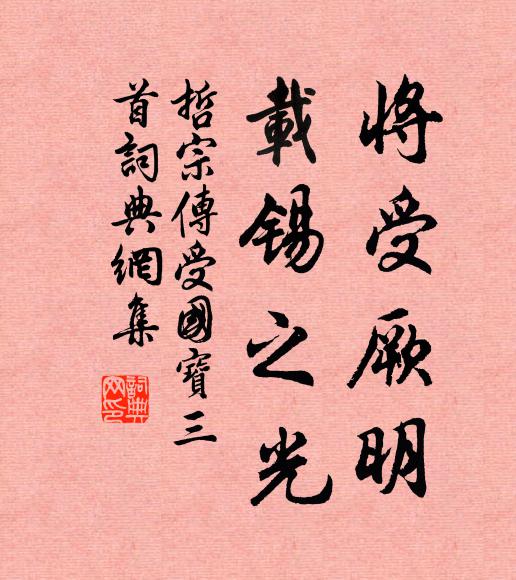 將受厥明
載錫之光
哲宗傳受國寶三
首詞典網集
詞典網印